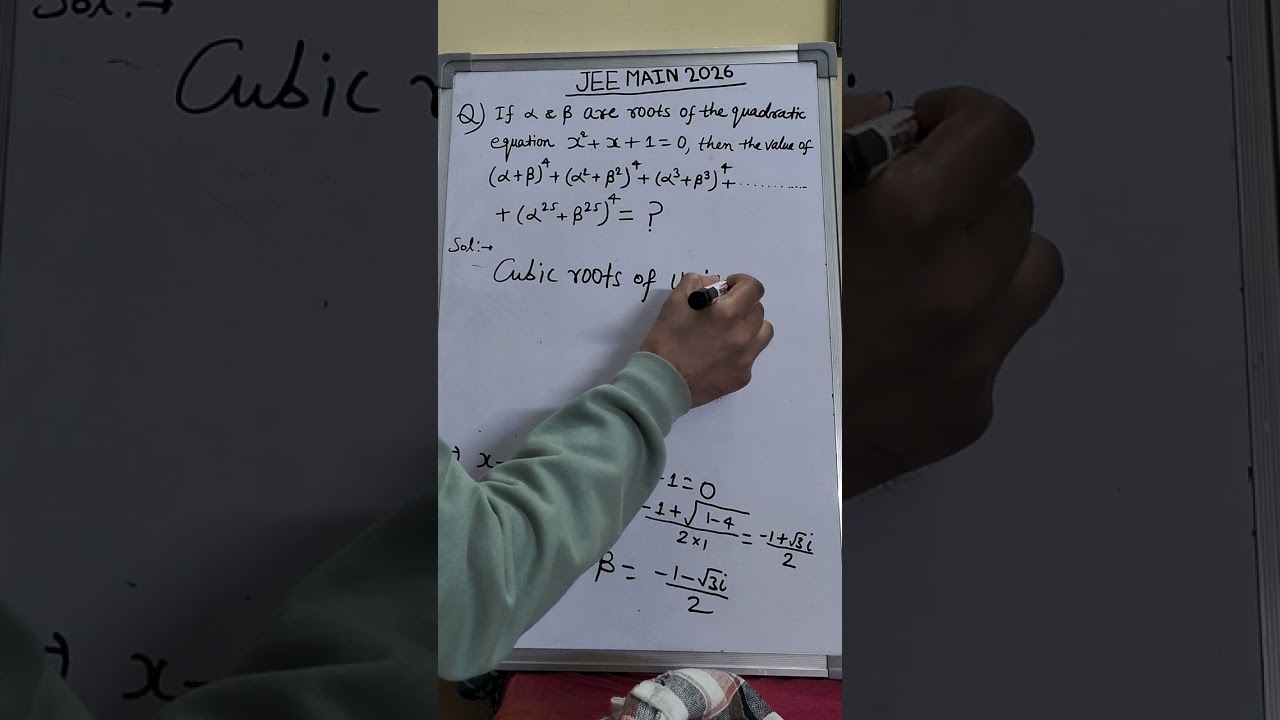 JEE MAIN 2026
Q) If α & β are roots of the quadratic
equation x² + x + 1 = 0, then the value of
(α + β)⁴ + (α² + β²)⁴ + (α³ + β³)⁴ + ............
+ (α²⁵ + β²⁵)⁴ = ?
Sol:→
Cubic roots of
x-
-1 = 0
-1 + √1-4 / 2×1 = -1 + √3i / 2
β = -1 - √3i / 2
Sol:→
Cubic
x-